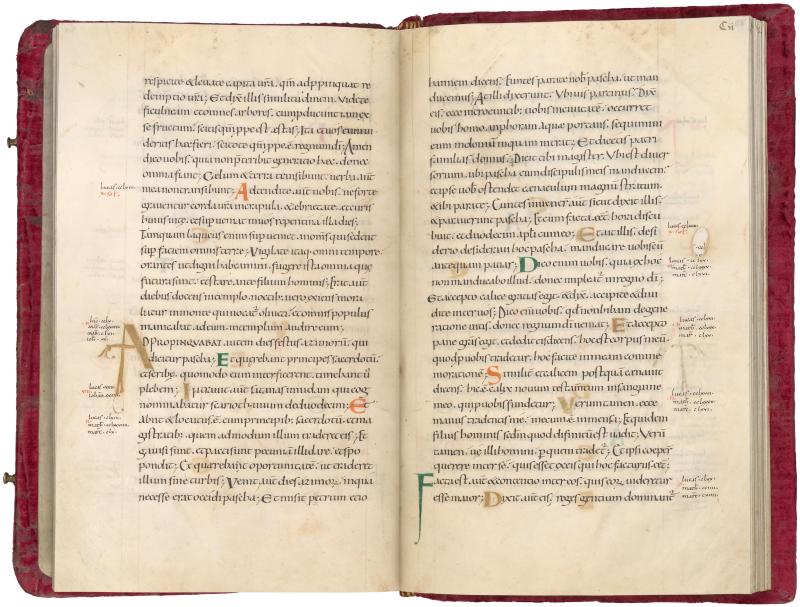 respicite & levate capita vr̄a. qm̄ adpropinquat re
demptio vr̄a; Et dix̄ illis similitudinem. Videte
ficulneam & omnes arbores. cum producunt iam ex
se fructum. scitis qm̄ ppe est aestas; Ita & vos cum
derit is haec fieri. scitote qm̄ ppe ē regnum dī; Amen
dico vobis. quia non preteribit generatio haec. donec
omnia fiant; Celum & terra transibunt. verba aut̄
mea non transibunt; Adtendite aut̄ vobis. ne forte
graventur corda vr̄a in crapula. & ebri&ate. & curis
huius vite. & superveniat in vos repentina illa dies;
Tamquam laqueus enim superveniet. in om̄s qui sedent
sup faciem omnis terre; Vigilate itaq; omni tempore
orantes. ut digni habeamini. fugere ista omnia que
futura sunt. & stare ante filium hominis; Erat aut̄
diebus docens in templo. noctib; vero exiens mora
batur in monte qui vocat̄ oliveti. & omnis populus
manicabat ad eum. in templum audire eum;
ADPROPINQVABAT. autem dies festus azimorū. qui
dicitur pascha; Et querebant principes sacerdotū.
& scribe. quomodo eum interficerent. timebant ū
plebem; Intravit aut̄ satanas in iudam qui cog
nominabatur scarioth. unum de duodecim; Et
abiit & locutus ē cum principib; sacerdotū. & ma
gistratib; quem admodum illum traderet eis; Et
gavisi sunt. & pacti sunt pecuniā illi dare. & spo
pondit; Et querebat oportunitatē. ut traderet
illum sine turbis; Venit aut̄ dies azimorū. in qua
necesse erat occidi pascha; Et misit petrum et io
Cii
hannem dicens. Euntes parate nob̄ pascha. ut man
ducemus; At illi dixerunt. Vbi vis paremus. Dix̄
eis. ecce introeuntib; vobis in civitatē. occurret
vobis homo amphoram aque portans. sequimini
eum in domum in quam intrat; Et dicetis patri
familias domus; Dicit tibi magister. Vbi est diver
sorium. ubi pascha cum discipulis meis manducem.
& ipse vobis ostendet cenaculum magnū stratum.
& ibi parate; Euntes invenerunt sicut dixit illis.
& paraverunt pascha; Et cum facta eēt hora discu
buit. & duodecim apl̄i cum eo; Et ait illis. desi
derio desideravi hoc pascha. manducare vobiscū
antequam patiar; Dico enim vobis. quia ex hoc
non manducabo illud. donec impleat̄ in regno dī;
Et accepto calice gratias egit. & dix̄. accipite & divi
dite inter vos; Dico enī vobis. qd non bibam de gene
ratione vitis. donec regnum dī veniat; Et accepto
pane gr̄as egit. & dedit eis dicens. hoc est corpus meū
quod p vobis tradetur. hoc facite in meam comme
morationē; Similit̄ & calicem postquā cenavit
dicens. hic ē calix novum testamentum in sanguine
meo. qui p vobis fundetur; Verumtamen. ecce
manus tradentis me. mecum ē in mensa; Et quidem
filius hominis sedm quod difinitū est vadit; Verū
tamen. ve illi homini. p quem tradet̄; Et ipsi ceper̄
querere inter se. quis esset ex eis qui hoc facturus eēt;
Facta est. aut̄ & contentio inter eos. quis eorū videretur
esse maior; Dixit aut̄ eis; reges gentium dominant̄